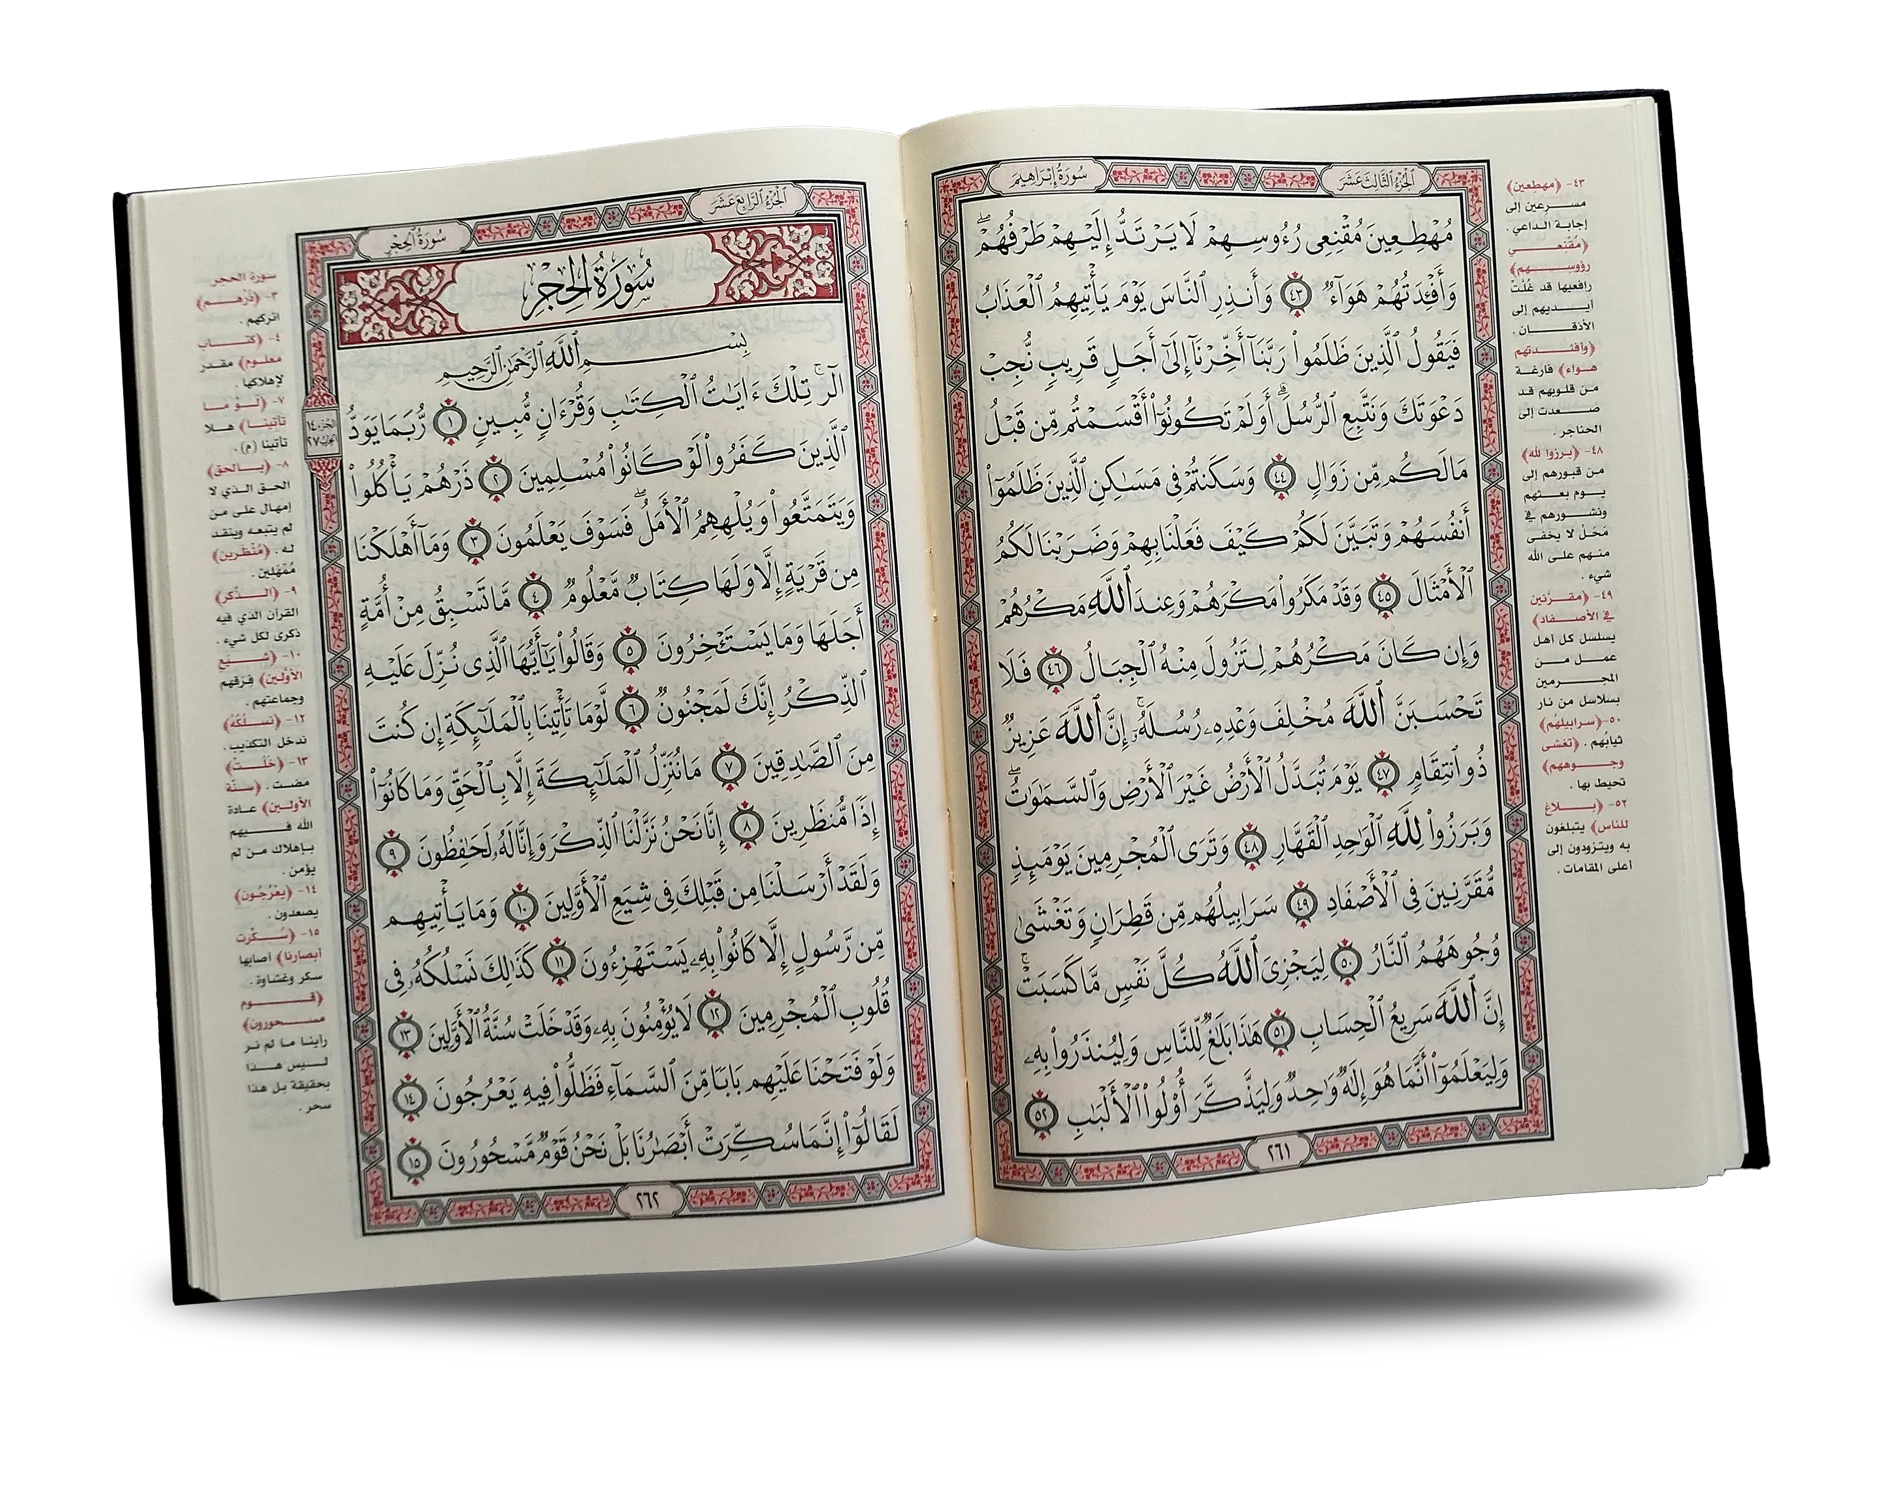 سُورَةُ إِبْرَاهِيمَ
الجُزْءُ الثَّالِثَ عَشَرَ
مُهْطِعِينَ مُقْنِعِى رُءُوسِهِمْ لَا يَرْتَدُّ إِلَيْهِمْ طَرْفُهُمْ ۖ
وَأَفْـِٔدَتُهُمْ هَوَآءٌ ٤٣ وَأَنذِرِ ٱلنَّاسَ يَوْمَ يَأْتِيهِمُ ٱلْعَذَابُ
فَيَقُولُ ٱلَّذِينَ ظَلَمُوا۟ رَبَّنَآ أَخِّرْنَآ إِلَىٰٓ أَجَلٍ قَرِيبٍ نُّجِبْ
دَعْوَتَكَ وَنَتَّبِعِ ٱلرُّسُلَ ۗ أَوَلَمْ تَكُونُوٓا۟ أَقْسَمْتُم مِّن قَبْلُ
مَا لَكُم مِّن زَوَالٍ ٤٤ وَسَكَنتُمْ فِى مَسَـٰكِنِ ٱلَّذِينَ ظَلَمُوٓا۟
أَنفُسَهُمْ وَتَبَيَّنَ لَكُمْ كَيْفَ فَعَلْنَا بِهِمْ وَضَرَبْنَا لَكُمُ
ٱلْأَمْثَالَ ٤٥ وَقَدْ مَكَرُوا۟ مَكْرَهُمْ وَعِندَ ٱللَّهِ مَكْرُهُمْ
وَإِن كَانَ مَكْرُهُمْ لِتَزُولَ مِنْهُ ٱلْجِبَالُ ٤٦ فَلَا
تَحْسَبَنَّ ٱللَّهَ مُخْلِفَ وَعْدِهِۦ رُسُلَهُۥٓ ۗ إِنَّ ٱللَّهَ عَزِيزٌ
ذُو ٱنتِقَامٍ ٤٧ يَوْمَ تُبَدَّلُ ٱلْأَرْضُ غَيْرَ ٱلْأَرْضِ وَٱلسَّمَـٰوَٰتُ ۖ
وَبَرَزُوا۟ لِلَّهِ ٱلْوَٰحِدِ ٱلْقَهَّارِ ٤٨ وَتَرَى ٱلْمُجْرِمِينَ يَوْمَئِذٍ
مُّقَرَّنِينَ فِى ٱلْأَصْفَادِ ٤٩ سَرَابِيلُهُم مِّن قَطِرَانٍ وَتَغْشَىٰ
وُجُوهَهُمُ ٱلنَّارُ ٥٠ لِيَجْزِىَ ٱللَّهُ كُلَّ نَفْسٍ مَّا كَسَبَتْ ۚ
إِنَّ ٱللَّهَ سَرِيعُ ٱلْحِسَابِ ٥١ هَـٰذَا بَلَـٰغٌ لِّلنَّاسِ وَلِيُنذَرُوا۟ بِهِۦ
وَلِيَعْلَمُوٓا۟ أَنَّمَا هُوَ إِلَـٰهٌ وَٰحِدٌ وَلِيَذَّكَّرَ أُو۟لُوا۟ ٱلْأَلْبَـٰبِ ٥٢
٢٦١
٤٣- ﴿مهطعين﴾
مسرعين إلى
إجابة الداعي .
﴿مُقْنِعي
رؤوسهم﴾
رافعيها قد غُلَّتْ
أيديهم إلى
الأذقان .
﴿وأفئدتهم
هواء﴾ فارغة
من قلوبهم قد
صعدت إلى
الحناجر .
٤٨- ﴿برزوا لله﴾
من قبورهم إلى
يوم بعثهم
ونشورهم في
مَحَلٍّ لا يخفى
منهم على الله
شيء .
٤٩- ﴿مقرَّنين
في الأصفاد﴾
يسلسل كل أهل
عمل من
المجرمين
بسلاسل من نار
٥٠- ﴿سرابيلهم﴾
ثيابُهم . ﴿تغشى
وجوههم﴾
تحيط بها .
٥٢- ﴿بلاغ
للناس﴾ يتبلغون
به ويتزودون إلى
أعلى المقامات .
سُورَةُ الحِجْرِ
الجُزْءُ الرَّابِعَ عَشَرَ
سُورَةُ الحِجْرِ
بِسْمِ ٱللَّهِ ٱلرَّحْمَـٰنِ ٱلرَّحِيمِ
الٓر ۚ تِلْكَ ءَايَـٰتُ ٱلْكِتَـٰبِ وَقُرْءَانٍ مُّبِينٍ ١ رُّبَمَا يَوَدُّ
ٱلَّذِينَ كَفَرُوا۟ لَوْ كَانُوا۟ مُسْلِمِينَ ٢ ذَرْهُمْ يَأْكُلُوا۟
وَيَتَمَتَّعُوا۟ وَيُلْهِهِمُ ٱلْأَمَلُ ۖ فَسَوْفَ يَعْلَمُونَ ٣ وَمَآ أَهْلَكْنَا
مِن قَرْيَةٍ إِلَّا وَلَهَا كِتَابٌ مَّعْلُومٌ ٤ مَّا تَسْبِقُ مِنْ أُمَّةٍ
أَجَلَهَا وَمَا يَسْتَـْٔخِرُونَ ٥ وَقَالُوا۟ يَـٰٓأَيُّهَا ٱلَّذِى نُزِّلَ عَلَيْهِ
ٱلذِّكْرُ إِنَّكَ لَمَجْنُونٌ ٦ لَّوْ مَا تَأْتِينَا بِٱلْمَلَـٰٓئِكَةِ إِن كُنتَ
مِنَ ٱلصَّـٰدِقِينَ ٧ مَا نُنَزِّلُ ٱلْمَلَـٰٓئِكَةَ إِلَّا بِٱلْحَقِّ وَمَا كَانُوٓا۟
إِذًا مُّنظَرِينَ ٨ إِنَّا نَحْنُ نَزَّلْنَا ٱلذِّكْرَ وَإِنَّا لَهُۥ لَحَـٰفِظُونَ ٩
وَلَقَدْ أَرْسَلْنَا مِن قَبْلِكَ فِى شِيَعِ ٱلْأَوَّلِينَ ١٠ وَمَا يَأْتِيهِم
مِّن رَّسُولٍ إِلَّا كَانُوا۟ بِهِۦ يَسْتَهْزِءُونَ ١١ كَذَٰلِكَ نَسْلُكُهُۥ فِى
قُلُوبِ ٱلْمُجْرِمِينَ ١٢ لَا يُؤْمِنُونَ بِهِۦ وَقَدْ خَلَتْ سُنَّةُ ٱلْأَوَّلِينَ ١٣
وَلَوْ فَتَحْنَا عَلَيْهِم بَابًا مِّنَ ٱلسَّمَآءِ فَظَلُّوا۟ فِيهِ يَعْرُجُونَ ١٤
لَقَالُوٓا۟ إِنَّمَا سُكِّرَتْ أَبْصَـٰرُنَا بَلْ نَحْنُ قَوْمٌ مَّسْحُورُونَ ١٥
٢٦٢
الجزء ١٤
الحزب ٢٧
سورة الحجر
٣- ﴿ذَرْهم﴾
اتركهم .
٤- ﴿كتاب
معلوم﴾ مقدر
لإهلاكها .
٧- ﴿لَوْ ما
تأتينا﴾ هلا
تأتينا (م) .
٨- ﴿بالحق﴾
الحق الذي لا
إمهال على من
لم يتبعه وينقد
له . ﴿مُنْظَرين﴾
مُمْهَلين .
٩- ﴿الذكر﴾
القرآن الذي فيه
ذكرى لكل شيء .
١٠- ﴿شيع
الأولين﴾ فِرَقهم
وجماعتهم .
١٢- ﴿نسلُكُهُ﴾
ندخل التكذيب .
١٣- ﴿خَلَتْ﴾
مضت . ﴿سنَّة
الأولين﴾ عادة
الله فيهم
بإهلاك من لم
يؤمن .
١٤- ﴿يعْرُجُون﴾
يصعدون .
١٥- ﴿سُكِّرت
أبصارنا﴾ أصابها
سكر وغشاوة .
﴿قوم
مسحورون﴾
رأينا ما لم نر
ليس هذا
بحقيقة بل هذا
سحر .